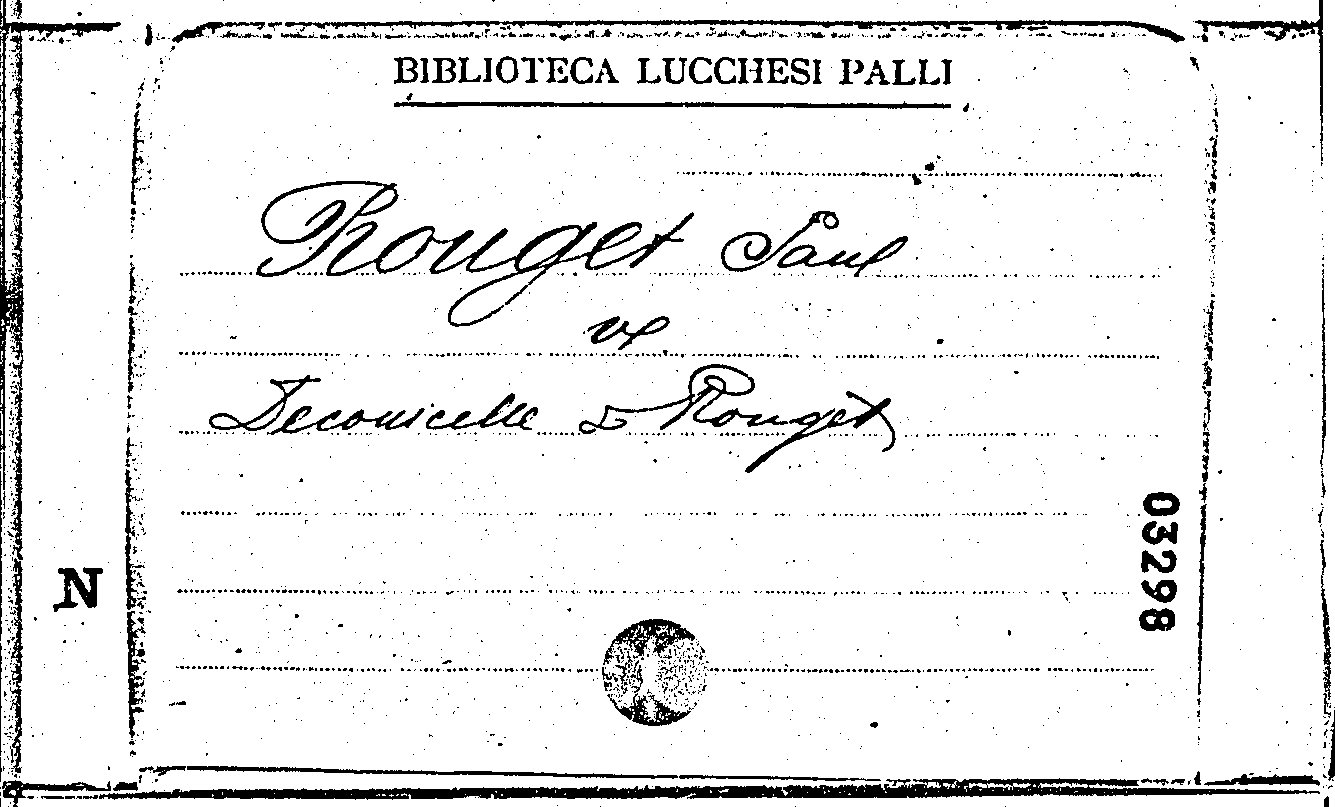 BIBLIOTECA LUCCHESI PALLI
Rouget Paul
ve
Deconicelle & Rouget
03298
N